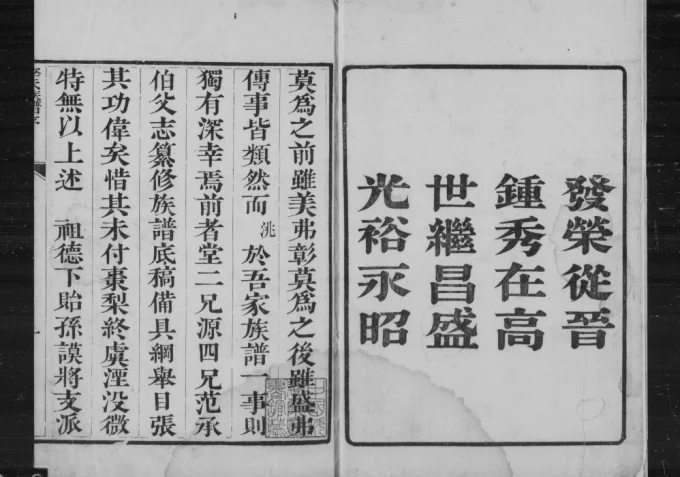 發榮從晉
鍾秀在高
世繼昌盛
光裕永昭
莫為之前雖美弗彰莫為之後雖盛弗
傳事皆類然而洮於吾家族譜一事則
獨有深幸焉前者堂二兄源四兄范承
伯父志纂修族譜底稿備具綱舉目張
其功偉矣惜其未付棗梨終虞湮没微
特無以上述 祖德下貽孫謨將支派